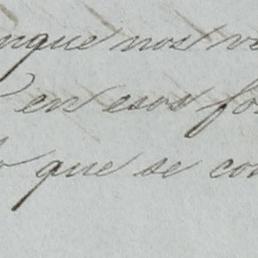 nque nos ve
en esos fo
o que se con